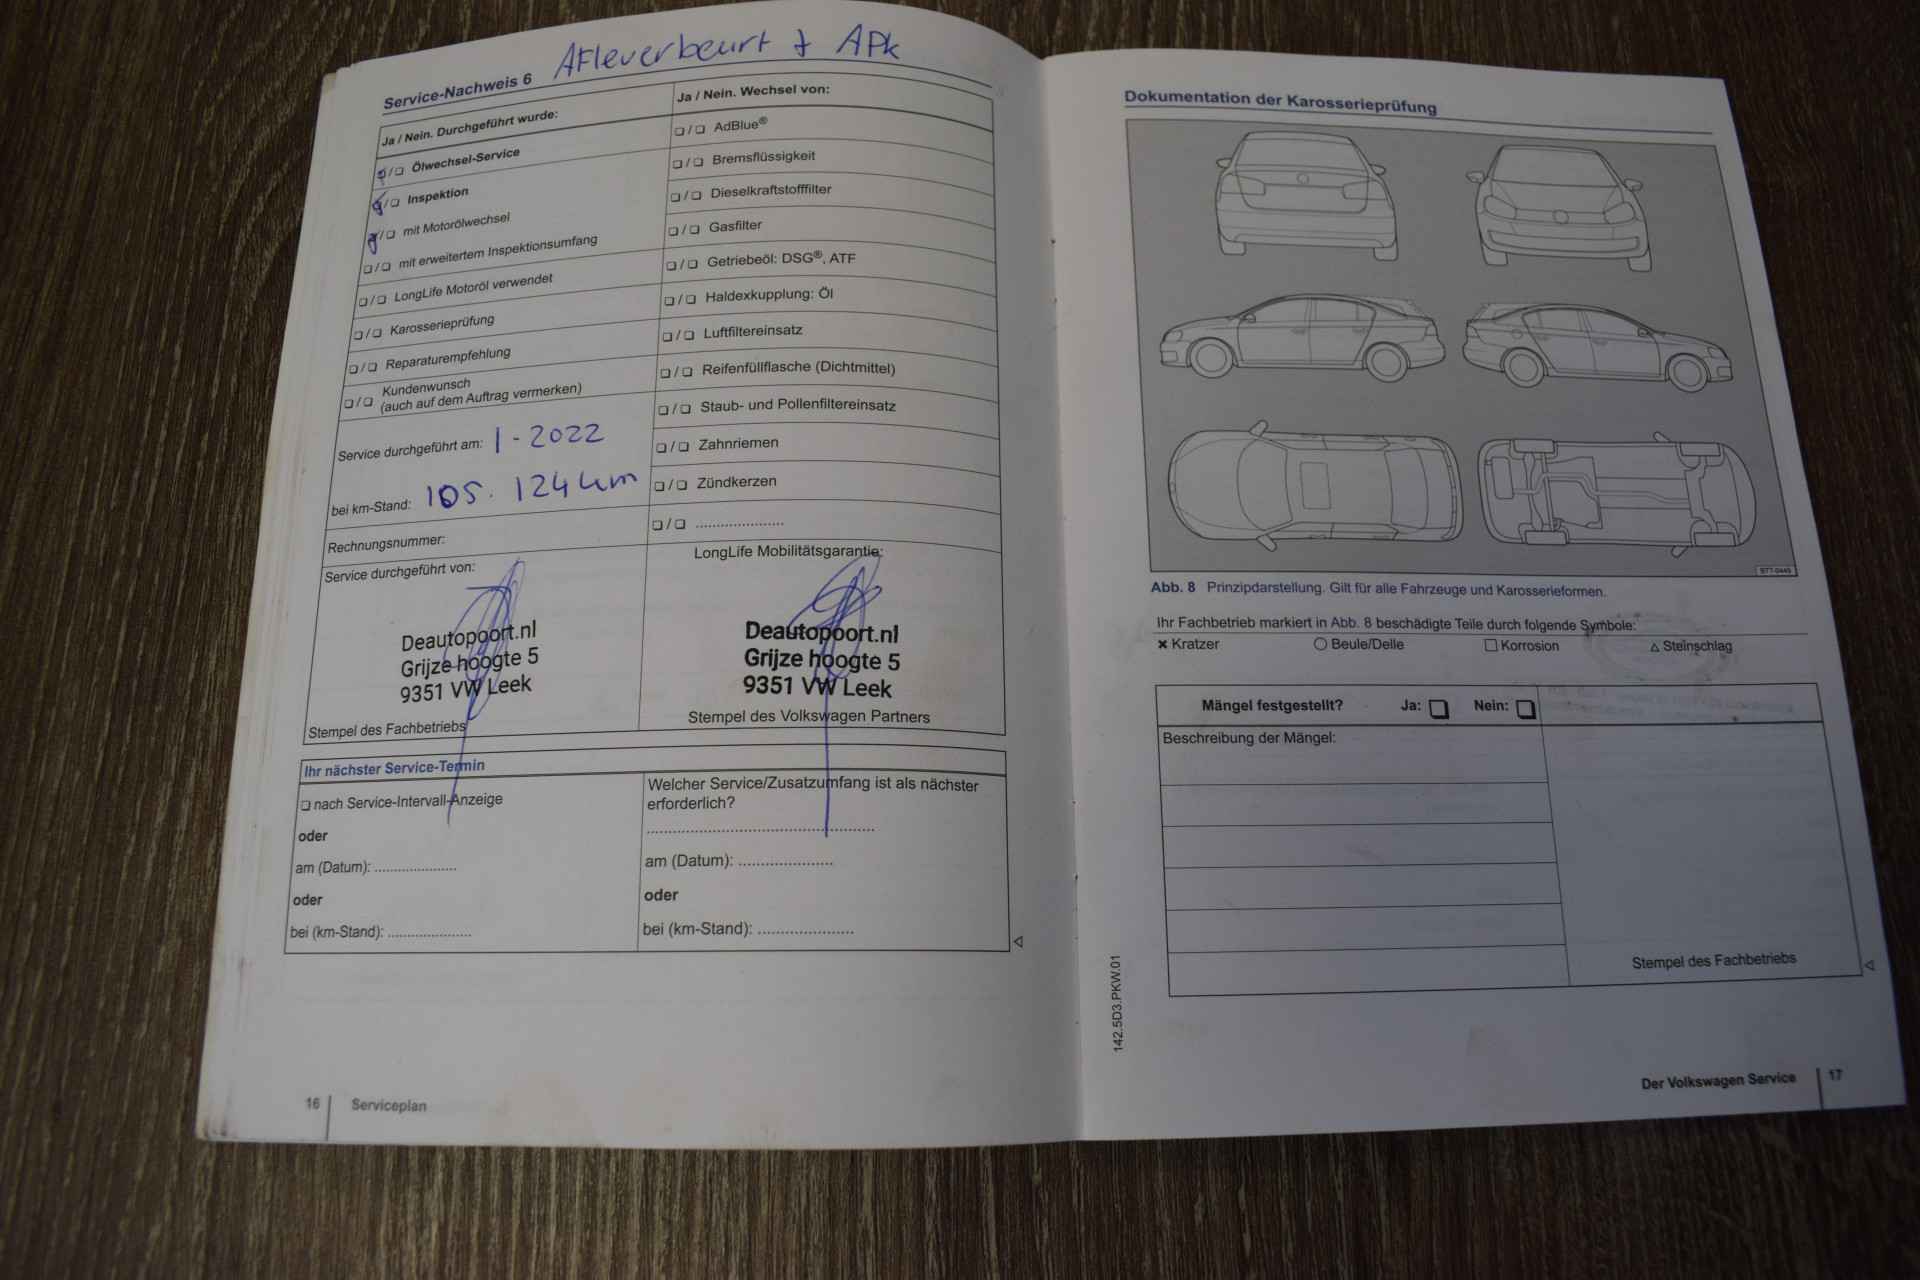 Service-Nachweis 6 Afleverbeurt + APk
Ja / Nein. Durchgeführt wurde:
❑/❑ Ölwechsel-Service
❑/❑ Inspektion
❑/❑ mit Motorölwechsel
❑/❑ mit erweitertem Inspektionsumfang
❑/❑ LongLife Motoröl verwendet
❑/❑ Karosserieprüfung
❑/❑ Reparaturempfehlung
❑/❑ Kundenwunsch
(auch auf dem Auftrag vermerken)
Service durchgeführt am: 1-2022
bei km-Stand: 105.124 km
Rechnungsnummer:
Service durchgeführt von:
Deautopoort.nl
Grijze hoogte 5
9351 VW Leek
Stempel des Fachbetriebs
Ja / Nein. Wechsel von:
❑/❑ AdBlue®
❑/❑ Bremsflüssigkeit
❑/❑ Dieselkraftstofffilter
❑/❑ Gasfilter
❑/❑ Getriebeöl: DSG®, ATF
❑/❑ Haldexkupplung: Öl
❑/❑ Luftfiltereinsatz
❑/❑ Reifenfüllflasche (Dichtmittel)
❑/❑ Staub- und Pollenfiltereinsatz
❑/❑ Zahnriemen
❑/❑ Zündkerzen
❑/❑ .....................
LongLife Mobilitätsgarantie:
Deautopoort.nl
Grijze hoogte 5
9351 VW Leek
Stempel des Volkswagen Partners
Ihr nächster Service-Termin
❑ nach Service-Intervall-Anzeige
oder
am (Datum): ....................
oder
bei (km-Stand): ....................
Welcher Service/Zusatzumfang ist als nächster
erforderlich?
..................................................
am (Datum): .....................
oder
bei (km-Stand): .....................
16 Serviceplan
Dokumentation der Karosserieprüfung
BT7-0445
Abb. 8 Prinzipdarstellung. Gilt für alle Fahrzeuge und Karosserieformen.
Ihr Fachbetrieb markiert in Abb. 8 beschädigte Teile durch folgende Symbole:
✖ Kratzer ○ Beule/Delle □ Korrosion △ Steinschlag
Mängel festgestellt? Ja: ❑ Nein: ❑
Beschreibung der Mängel:
Stempel des Fachbetriebs
142.5D3.PKW.01
Der Volkswagen Service 17